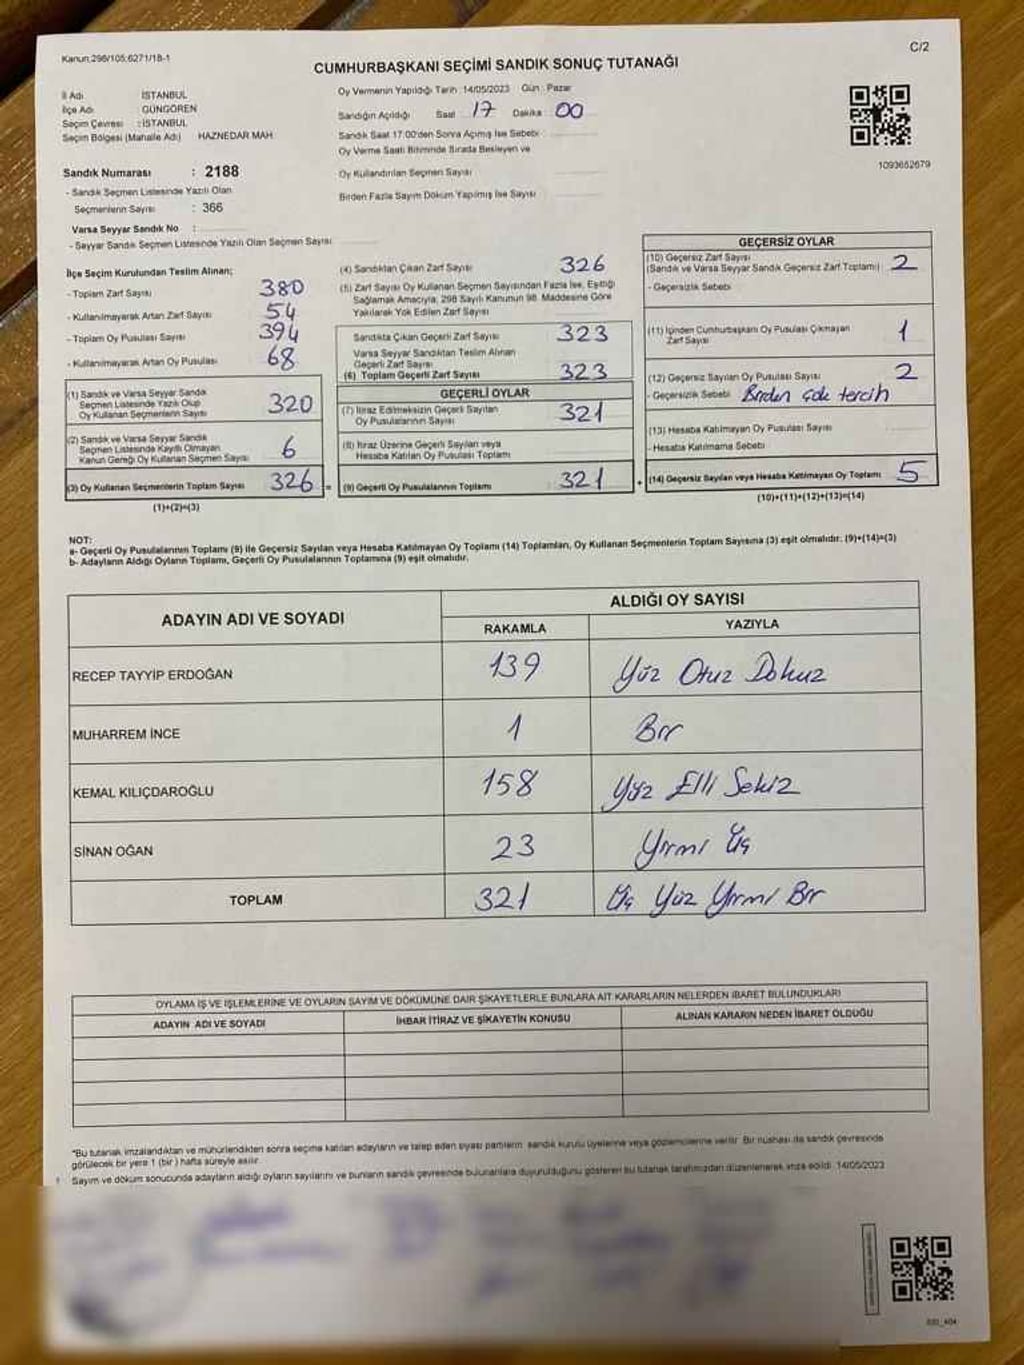 Kanun:298/105;6271/18-1
C/2
CUMHURBAŞKANI SEÇİMİ SANDIK SONUÇ TUTANAĞI
İl Adı : İSTANBUL
İlçe Adı : GÜNGÖREN
Seçim Çevresi : İSTANBUL
Seçim Bölgesi (Mahalle Adı) HAZNEDAR MAH.
Sandık Numarası : 2188
- Sandık Seçmen Listesinde Yazılı Olan
Seçmenlerin Sayısı : 366
Varsa Seyyar Sandık No :
- Seyyar Sandık Seçmen Listesinde Yazılı Olan Seçmen Sayısı
Oy Vermenin Yapıldığı Tarih :14/05/2023 Gün : Pazar
Sandığın Açıldığı Saat 17 Dakika 00
Sandık Saat 17:00'den Sonra Açılmış İse Sebebi
Oy Verme Saati Bitiminde Sırada Bekleyen ve
Oy Kullandırılan Seçmen Sayısı
Birden Fazla Sayım Döküm Yapılmış İse Sayısı
1093652679
İlçe Seçim Kurulundan Teslim Alınan;
- Toplam Zarf Sayısı 380
- Kullanılmayarak Artan Zarf Sayısı 54
- Toplam Oy Pusulası Sayısı 394
- Kullanılmayarak Artan Oy Pusulası 68
(1) Sandık ve Varsa Seyyar Sandık
Seçmen Listesinde Yazılı Olup
Oy Kullanan Seçmenlerin Sayısı 320
(2) Sandık ve Varsa Seyyar Sandık
Seçmen Listesinde Kayıtlı Olmayan
Kanun Gereği Oy Kullanan Seçmen Sayısı 6
(3) Oy Kullanan Seçmenlerin Toplam Sayısı 326 =
(1)+(2)=(3)
(4) Sandıktan Çıkan Zarf Sayısı 326
(5) Zarf Sayısı Oy Kullanan Seçmen Sayısından Fazla İse, Eşitliği
Sağlamak Amacıyla, 298 Sayılı Kanunun 98. Maddesine Göre
Yakılarak Yok Edilen Zarf Sayısı
Sandıkta Çıkan Geçerli Zarf Sayısı 323
Varsa Seyyar Sandıktan Teslim Alınan
Geçerli Zarf Sayısı
(6) Toplam Geçerli Zarf Sayısı 323
GEÇERLİ OYLAR
(7) İtiraz Edilmeksizin Geçerli Sayılan
Oy Pusulasının Sayısı 321
(8) İtiraz Üzerine Geçerli Sayılan veya
Hesaba Katılan Oy Pusulası Toplamı
(9) Geçerli Oy Pusulalarının Toplamı 321 +
GEÇERSİZ OYLAR
(10) Geçersiz Zarf Sayısı
(Sandık ve Varsa Seyyar Sandık Geçersiz Zarf Toplamı) 2
- Geçersizlik Sebebi
(11) İçinden Cumhurbaşkanı Oy Pusulası Çıkmayan
Zarf Sayısı 1
(12) Geçersiz Sayılan Oy Pusulası Sayısı 2
- Geçersizlik Sebebi Birden çok tercih
(13) Hesaba Katılmayan Oy Pusulası Sayısı
- Hesaba Katılmama Sebebi
(14) Geçersiz Sayılan veya Hesaba Katılmayan Oy Toplamı 5
(10)+(11)+(12)+(13)=(14)
NOT:
a- Geçerli Oy Pusulalarının Toplamı (9) ile Geçersiz Sayılan veya Hesaba Katılmayan Oy Toplamı (14) Toplamları, Oy Kullanan Seçmenlerin Toplam Sayısına (3) eşit olmalıdır. (9)+(14)=(3)
b- Adayların Aldığı Oyların Toplamı, Geçerli Oy Pusulalarının Toplamına (9) eşit olmalıdır.
ADAYIN ADI VE SOYADI
ALDIĞI OY SAYISI
RAKAMLA YAZIYLA
RECEP TAYYİP ERDOĞAN 139 Yüz Otuz Dokuz
MUHARREM İNCE 1 Bir
KEMAL KILIÇDAROĞLU 158 Yüz Elli Sekiz
SİNAN OĞAN 23 Yirmi Üç
TOPLAM 321 Üç Yüz Yirmi Bir
OYLAMA İŞ VE İŞLEMLERİNE VE OYLARIN SAYIM VE DÖKÜMÜNE DAİR ŞİKAYETLERLE BUNLARA AİT KARARLARIN NELERDEN İBARET BULUNDUKLARI
ADAYIN ADI VE SOYADI İHBAR İTİRAZ VE ŞİKAYETİN KONUSU ALINAN KARARIN NEDEN İBARET OLDUĞU
*Bu tutanak imzalandıktan ve mühürlendikten sonra seçime katılan adayların ve talep eden siyasi partilerin sandık kurulu üyelerine veya gözlemcilerine verilir. Bir nüshası da sandık çevresinde
görülecek bir yere 1 (bir) hafta süreyle asılır.
Sayım ve döküm sonucunda adayların aldığı oyların sayılarını ve bunların sandık çevresinde bulunanlara duyurulduğunu gösteren bu tutanak tarafımızdan düzenlenerek imza edildi. 14/05/2023